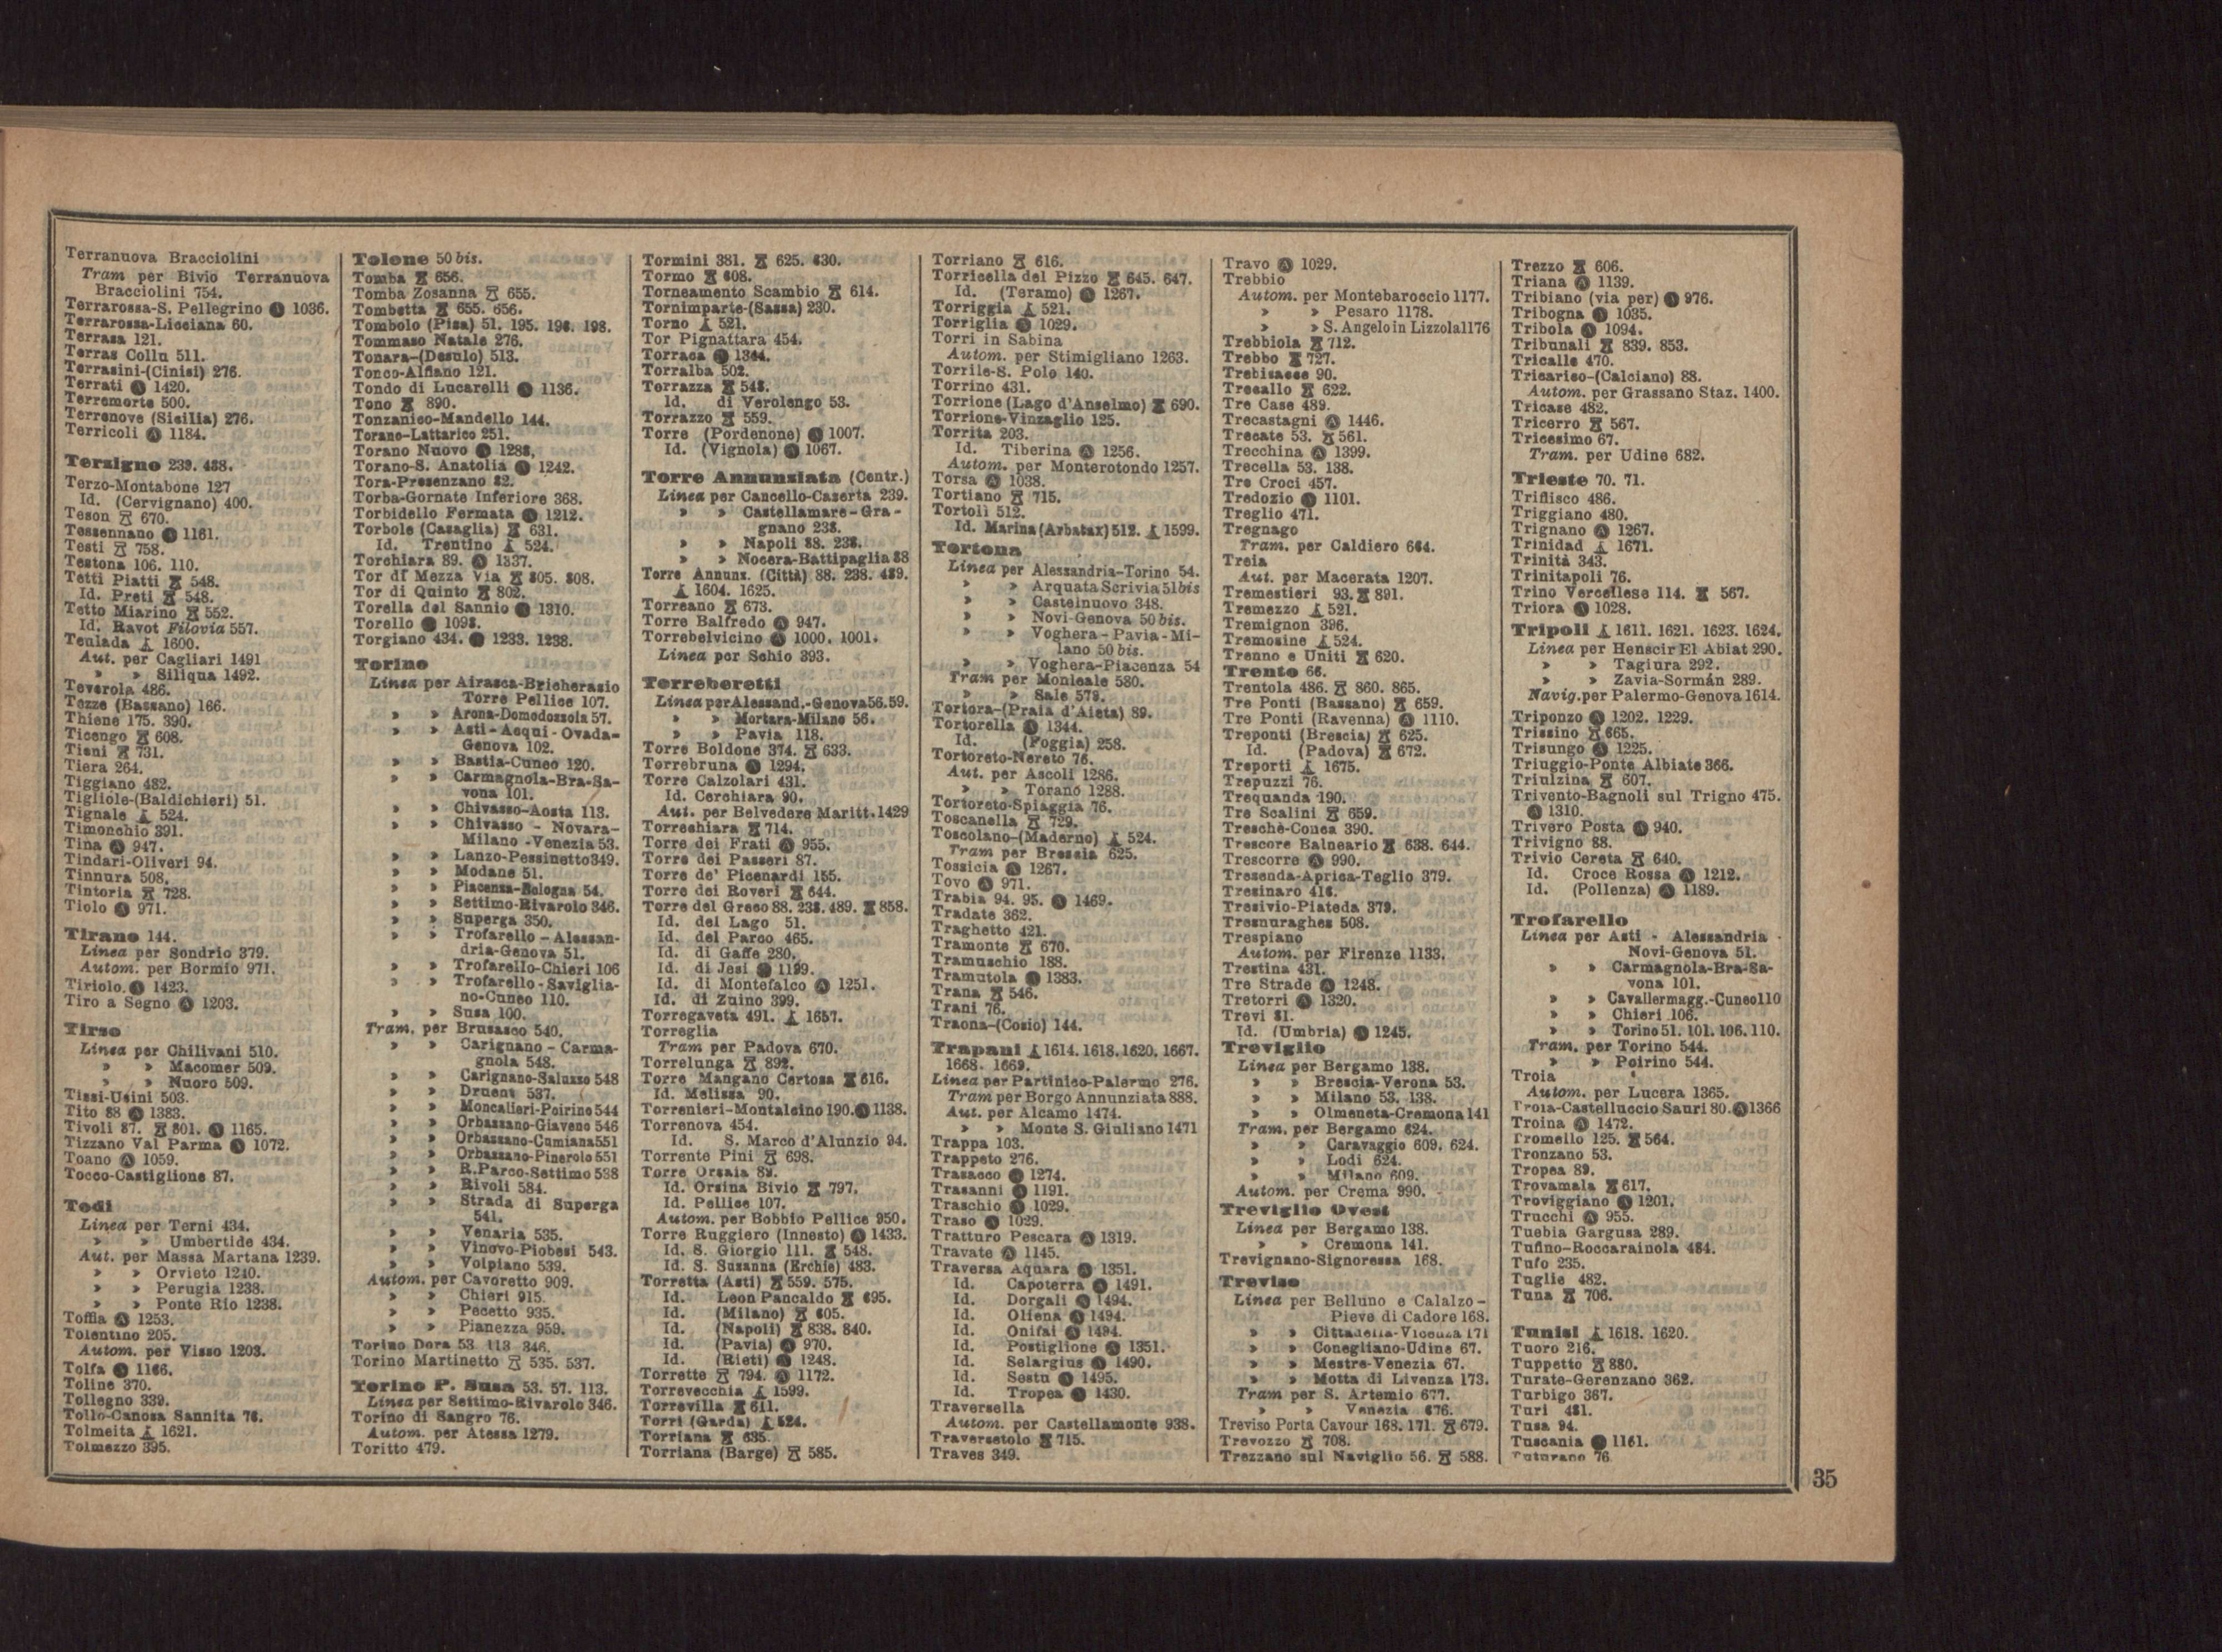 Terranuova Bracciolini
Tram per Bivio Terranuova
Bracciolini 754.
Terrarossa-S. Pellegrino Ⓐ 1036.
Terrarossa-Licciana 60.
Terrasa 121.
Terras Collu 511.
Terrasini-(Cinisi) 276.
Terrati Ⓐ 1420.
Terremorte 500.
Terrenove (Sicilia) 276.
Terricoli Ⓐ 1184.
Terzigno 239. 488.
Terzo-Montabone 127
Id. (Cervignano) 400.
Teson 670.
Tessennano Ⓐ 1161.
Testi 758.
Testona 106. 110.
Tetti Piatti 548.
Id. Preti 548.
Tetto Miarino 552.
Id. Ravot Filovia 557.
Teulada 1600.
Aut. per Cagliari 1491
» » Siliqua 1492.
Teverola 486.
Tezze (Bassano) 166.
Thiene 175. 390.
Ticengo 608.
Tieni 731.
Tiera 264.
Tiggiano 482.
Tigliole-(Baldichieri) 51.
Tignale 524.
Timonchio 391.
Tina Ⓐ 947.
Tindari-Oliveri 94.
Tinnura 508.
Tintoria 728.
Tiolo Ⓐ 971.
Tirano 144.
Linea per Sondrio 379.
Autom. per Bormio 971.
Tiriolo Ⓐ 1423.
Tiro a Segno Ⓐ 1203.
Tirso
Linea per Chilivani 510.
» » Macomer 509.
» » Nuoro 509.
Tissi-Usini 503.
Tito 88 Ⓐ 1383.
Tivoli 87. 801. Ⓐ 1165.
Tizzano Val Parma Ⓐ 1072.
Toano Ⓐ 1059.
Tocco-Castiglione 87.
Todi
Linea per Terni 434.
» » Umbertide 434.
Aut. per Massa Martana 1239.
» » Orvieto 1240.
» » Perugia 1238.
» » Ponte Rio 1238.
Toffia Ⓐ 1253.
Tolentino 205.
Autom. per Visso 1203.
Tolfa Ⓐ 1166.
Toline 370.
Tollegno 339.
Tollo-Canosa Sannita 76.
Tolmeita 1621.
Tolmezzo 395.
Tolone 50 bis.
Tomba 656.
Tomba Zosanna 655.
Tombetta 655. 656.
Tombolo (Pisa) 51. 195. 196. 198.
Tommaso Natale 276.
Tonara-(Desulo) 513.
Tonco-Alfiano 121.
Tondo di Lucarelli Ⓐ 1136.
Tono 890.
Tonzanico-Mandello 144.
Torano-Lattarico 251.
Torano Nuovo Ⓐ 1288.
Torano-S. Anatolia Ⓐ 1242.
Tora-Presenzano 82.
Torba-Gornate Inferiore 368.
Torbidello Fermata Ⓐ 1212.
Torbole (Casaglia) 631.
Id. Trentino 524.
Torchiara 89. Ⓐ 1337.
Tor di Mezza Via 805. 808.
Tor di Quinto 802.
Torella del Sannio Ⓐ 1310.
Torello Ⓐ 1098.
Torgiano 434. Ⓐ 1233. 1238.
Torino
Linea per Airasca-Bricherasio
Torre Pellice 107.
» » Arona-Domodossola 57.
» » Asti-Acqui-Ovada-
Genova 102.
» » Bastia-Cuneo 120.
» » Carmagnola-Bra-Sa-
vona 101.
» » Chivasso-Aosta 113.
» » Chivasso - Novara-
Milano -Venezia 53.
» » Lanzo-Pessinetto 349.
» » Modane 51.
» » Piacenza-Bologna 54.
» » Settimo-Rivarolo 346.
» » Superga 350.
» » Trofarello - Alessan-
dria-Genova 51.
» » Trofarello-Chieri 106
» » Trofarello-Saviglia-
no-Cuneo 110.
» » Susa 100.
Tram. per Brusasco 540.
» » Carignano - Carma-
gnola 548.
» » Carignano-Saluzzo 548
» » Druent 537.
» » Moncalieri-Poirino 544
» » Orbassano-Giaveno 546
» » Orbassano-Cumiana 551
» » Orbassano-Pinerolo 551
» » R. Parco-Settimo 538
» » Rivoli 584.
» » Strada di Superga
541.
» » Venaria 535.
» » Vinovo-Piobesi 543.
» » Volpiano 539.
Autom. per Cavoretto 909.
» » Chieri 915.
» » Pecetto 935.
» » Pianezza 959.
Torino Dora 53. 113. 346.
Torino Martinetto 535. 537.
Torino P. Susa 53. 57. 113.
Linea per Settimo-Rivarolo 346.
Torino di Sangro 76.
Autom. per Atessa 1279.
Toritto 479.
Tormini 381. 625. 630.
Tormo 608.
Torneamento Scambio 614.
Tornimparte-(Sassa) 230.
Torno 521.
Tor Pignattara 454.
Torraca Ⓐ 1344.
Torralba 502.
Torrazza 548.
Id. di Verolengo 53.
Torrazzo 559.
Torre (Pordenone) Ⓐ 1007.
Id. (Vignola) Ⓐ 1067.
Torre Annunziata (Centr.)
Linea per Cancello-Caserta 239.
» » Castellamare-Gra-
gnano 238.
» » Napoli 88. 238.
» » Nocera-Battipaglia 88
Torre Annunz. (Città) 88. 238. 489.
1604. 1625.
Torreano 673.
Torre Balfredo Ⓐ 947.
Torrebelvicino Ⓐ 1000. 1001.
Linea per Schio 393.
Torreberetti
Linea per Alessand.-Genova 56. 59.
» » Mortara-Milano 56.
» » Pavia 118.
Torre Boldone 374. 633.
Torrebruna Ⓐ 1294.
Torre Calzolari 431.
Id. Cerchiara 90.
Aut. per Belvedere Maritt. 1429
Torrechiara 714.
Torre dei Frati Ⓐ 955.
Torre dei Passeri 87.
Torre de' Picenardi 155.
Torre dei Roveri 644.
Torre del Greco 88. 238. 489. 858.
Id. del Lago 51.
Id. del Parco 465.
Id. di Gaffe 280.
Id. di Jesi Ⓐ 1199.
Id. di Montefalco Ⓐ 1251.
Id. di Zuino 399.
Torregaveta 491. 1657.
Torreglia
Tram per Padova 670.
Torrelunga 892.
Torre Mangano Certosa 616.
Id. Melissa 90.
Torrenieri-Montalcino 190. Ⓐ 1138.
Torrenova 454.
Id. S. Marco d'Alunzio 94.
Torrente Pini 698.
Torre Orsaia 89.
Id. Orsina Bivio 797.
Id. Pellice 107.
Autom. per Bobbio Pellice 950.
Torre Ruggiero (Innesto) Ⓐ 1433.
Id. S. Giorgio 111. 548.
Id. S. Susanna (Erchie) 483.
Torretta (Asti) 559. 575.
Id. Leon Pancaldo 695.
Id. (Milano) 605.
Id. (Napoli) 838. 840.
Id. (Pavia) Ⓐ 970.
Id. (Rieti) Ⓐ 1248.
Torrette 794. Ⓐ 1172.
Torrevecchia 1599.
Torrevilla 611.
Torri (Garda) 524.
Torriana 635.
Torriana (Barge) 585.
Torriano 616.
Torricella del Pizzo 645. 647.
Id. (Teramo) Ⓐ 1267.
Torriggia 521.
Torriglia Ⓐ 1029.
Torri in Sabina
Autom. per Stimigliano 1263.
Torrile-S. Polo 140.
Torrino 431.
Torrione (Lago d'Anselmo) 690.
Torrione-Vinzaglio 125.
Torrita 203.
Id. Tiberina Ⓐ 1256.
Autom. per Monterotondo 1257.
Torsa Ⓐ 1038.
Tortiano 715.
Tortolì 512.
Id. Marina (Arbatax) 512. 1599.
Tortona
Linea per Alessandria-Torino 54.
» » Arquata Scrivia 51 bis
» » Castelnuovo 348.
» » Novi-Genova 50 bis.
» » Voghera - Pavia - Mi-
lano 50 bis.
» » Voghera-Piacenza 54
Tram per Monleale 580.
» » Sale 579.
Tortora-(Praia d'Aieta) 89.
Tortorella Ⓐ 1344.
Id. (Foggia) 258.
Tortoreto-Nereto 76.
Aut. per Ascoli 1286.
» » Torano 1288.
Tortoreto-Spiaggia 76.
Toscanella 729.
Toscolano-(Maderno) 524.
Tram per Brescia 625.
Tossicia Ⓐ 1267.
Tovo Ⓐ 971.
Trabia 94. 95. Ⓐ 1469.
Tradate 362.
Traghetto 421.
Tramonte 670.
Tramuschio 188.
Tramutola Ⓐ 1383.
Trana 546.
Trani 76.
Traona-(Cosio) 144.
Trapani 1614. 1618. 1620. 1667.
1668. 1669.
Linea per Partinico-Palermo 276.
Tram per Borgo Annunziata 888.
Aut. per Alcamo 1474.
» » Monte S. Giuliano 1471
Trappa 103.
Trappeto 276.
Trasacco Ⓐ 1274.
Trasanni Ⓐ 1191.
Traschio Ⓐ 1029.
Traso Ⓐ 1029.
Tratturo Pescara Ⓐ 1319.
Travate Ⓐ 1145.
Traversa Aquara Ⓐ 1351.
Id. Capoterra Ⓐ 1491.
Id. Dorgali Ⓐ 1494.
Id. Oliena Ⓐ 1494.
Id. Onifai Ⓐ 1494.
Id. Postiglione Ⓐ 1351.
Id. Selargius Ⓐ 1490.
Id. Sestu Ⓐ 1495.
Id. Tropea Ⓐ 1430.
Traversella
Autom. per Castellamonte 938.
Traversetolo 715.
Traves 349.
Travo Ⓐ 1029.
Trebbio
Autom. per Montebaroccio 1177.
» » Pesaro 1178.
» » S. Angelo in Lizzola 1176
Trebbiola 712.
Trebbo 727.
Trebisacce 90.
Trecallo 622.
Tre Case 489.
Trecastagni Ⓐ 1446.
Trecate 53. 561.
Trecchina Ⓐ 1399.
Trecella 53. 138.
Tre Croci 457.
Tredozio Ⓐ 1101.
Treglio 471.
Tregnago
Tram. per Caldiero 664.
Treia
Aut. per Macerata 1207.
Tremestieri 93. 891.
Tremezzo 521.
Tremignon 396.
Tremosine 524.
Trenno e Uniti 620.
Trento 66.
Trentola 486. 860. 865.
Tre Ponti (Bassano) 659.
Tre Ponti (Ravenna) Ⓐ 1110.
Treponti (Brescia) 625.
Id. (Padova) 672.
Treporti 1675.
Trepuzzi 76.
Trequanda 190.
Tre Scalini 659.
Treschè-Conca 390.
Trescore Balneario 638. 644.
Trescorre Ⓐ 990.
Tresenda-Aprica-Teglio 379.
Tresinaro 416.
Tresivio-Piateda 379.
Tresnuraghes 508.
Trespiano
Autom. per Firenze 1133.
Trestina 431.
Tre Strade Ⓐ 1248.
Tretorri Ⓐ 1320.
Trevi 81.
Id. (Umbria) Ⓐ 1245.
Treviglio
Linea per Bergamo 138.
» » Brescia-Verona 53.
» » Milano 53. 138.
» » Olmeneta-Cremona 141
Tram. per Bergamo 624.
» » Caravaggio 609. 624.
» » Lodi 624.
» » Milano 609.
Autom. per Crema 990.
Treviglio Ovest
Linea per Bergamo 138.
» » Cremona 141.
Trevignano-Signoressa 168.
Treviso
Linea per Belluno e Calalzo-
Pieve di Cadore 168.
» » Cittadella-Vicenza 171
» » Conegliano-Udine 67.
» » Mestre-Venezia 67.
» » Motta di Livenza 173.
Tram per S. Artemio 677.
» » Venezia 676.
Treviso Porta Cavour 168. 171. 679.
Trevozzo 708.
Trezzano sul Naviglio 56. 588.
Trezzo 606.
Triana Ⓐ 1139.
Tribiano (via per) Ⓐ 976.
Tribogna Ⓐ 1035.
Tribola Ⓐ 1094.
Tribunali 839. 853.
Tricalle 470.
Tricarico-(Calciano) 88.
Autom. per Grassano Staz. 1400.
Tricase 482.
Tricerro 567.
Tricesimo 67.
Tram. per Udine 682.
Trieste 70. 71.
Triflisco 486.
Triggiano 480.
Trignano Ⓐ 1267.
Trinidad 1671.
Trinità 343.
Trinitapoli 76.
Trino Vercellese 114. 567.
Triora Ⓐ 1028.
Tripoli 1611. 1621. 1623. 1624.
Linea per Henscir El Abiat 290.
» » Tagiura 292.
» » Zavia-Sormán 289.
Navig. per Palermo-Genova 1614.
Triponzo Ⓐ 1202. 1229.
Trissino 665.
Trisungo Ⓐ 1225.
Triuggio-Ponte Albiate 366.
Triulzina 607.
Trivento-Bagnoli sul Trigno 475.
Ⓐ 1310.
Trivero Posta Ⓐ 940.
Trivigno 88.
Trivio Cereta 640.
Id. Croce Rossa Ⓐ 1212.
Id. (Pollenza) Ⓐ 1189.
Trofarello
Linea per Asti - Alessandria -
Novi-Genova 51.
» » Carmagnola-Bra-Sa-
vona 101.
» » Cavallermagg.-Cuneo 110
» » Chieri 106.
» » Torino 51. 101. 106. 110.
Tram. per Torino 544.
» » Poirino 544.
Troia
Autom. per Lucera 1365.
Troia-Castelluccio Sauri 80. Ⓐ 1366
Troina Ⓐ 1472.
Tromello 125. 564.
Tronzano 53.
Tropea 89.
Trovamala 617.
Troviggiano Ⓐ 1201.
Trucchi Ⓐ 955.
Tuebia Gargusa 289.
Tufino-Roccarainola 484.
Tufo 235.
Tuglie 482.
Tuna 706.
Tunisi 1618. 1620.
Tuoro 216.
Tuppetto 880.
Turate-Gerenzano 362.
Turbigo 367.
Turi 481.
Tusa 94.
Tuscania Ⓐ 1161.
Tuturano 76
35